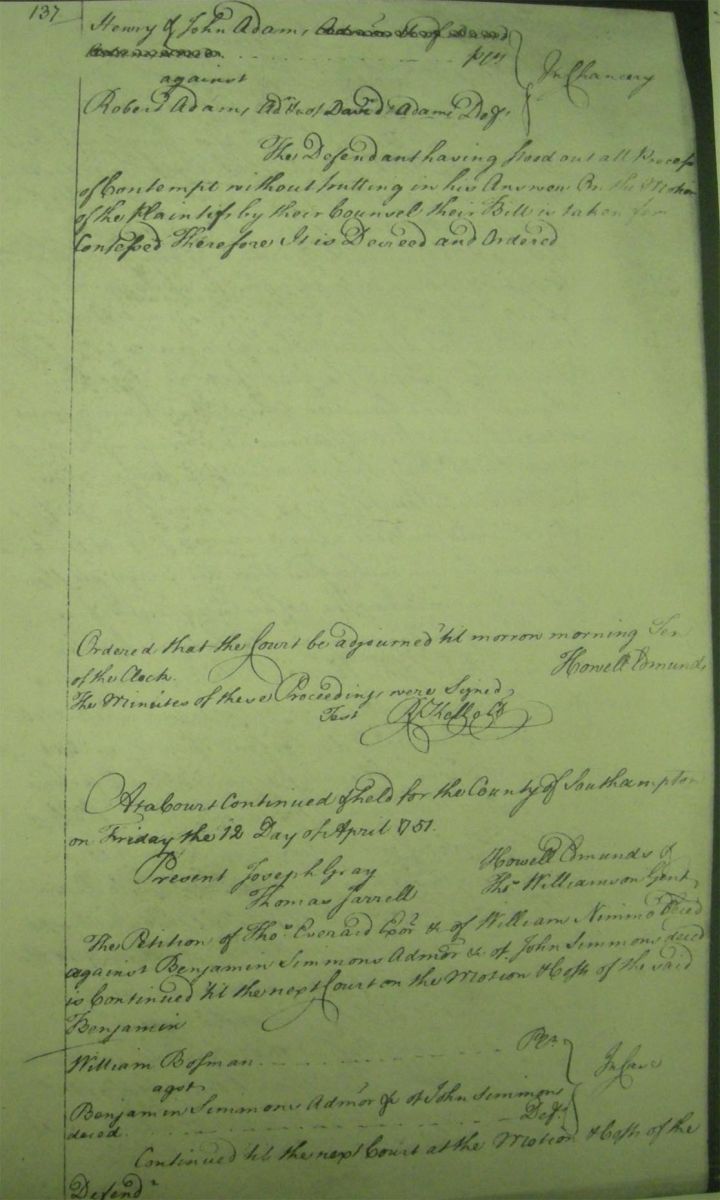 137
Henry & John Adams
Plts
against
In Chancery
Robert Adams Admr &c of David Adams Deft
The Defendant having stood out all Process
of Contempt without putting in his Answer On the Motion
of the Plaintifs by their Counsel their Bill is taken for
Confessed Therefore It is Decreed and Ordered
Ordered that the Court be adjourned 'til morrow morning Ten
of the Clock.
Howell Edmunds
The Minutes of these Proceedings were Signed
Test
At a Court Continued & held for the County of Southampton
on Friday the 12 Day of April 1751.
Present Joseph Gray
Howell Edmunds &
Thomas Jarrell
Thos Williamson Gent
The Petition of Thos Everard Exor &c of William Nimmo deced
against Benjamin Simmons Admor &c of John Simmons deced
is Continued 'til the next Court on the Motion & Costs of the said
Benjamin
William Bosman
Plt
agst
In Case
Benjamin Simmons Admor &c of John Simmons
deced
Deft
Continued 'til the next Court at the Motion & Costs of the
Defend.t